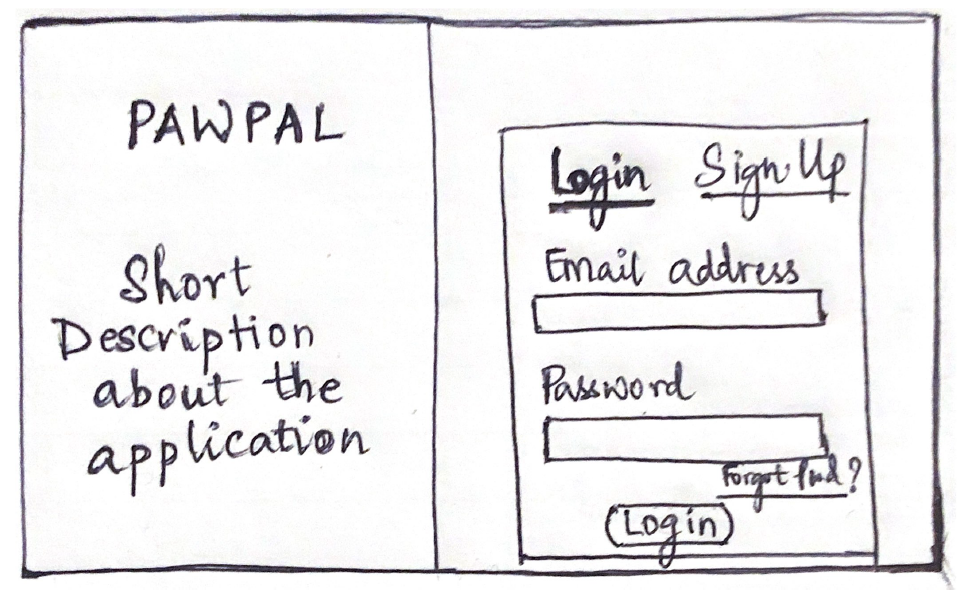 PAWPAL
Short
Description
about the
application
Login Sign Up
Email address
Password
Forgot pwd?
Login